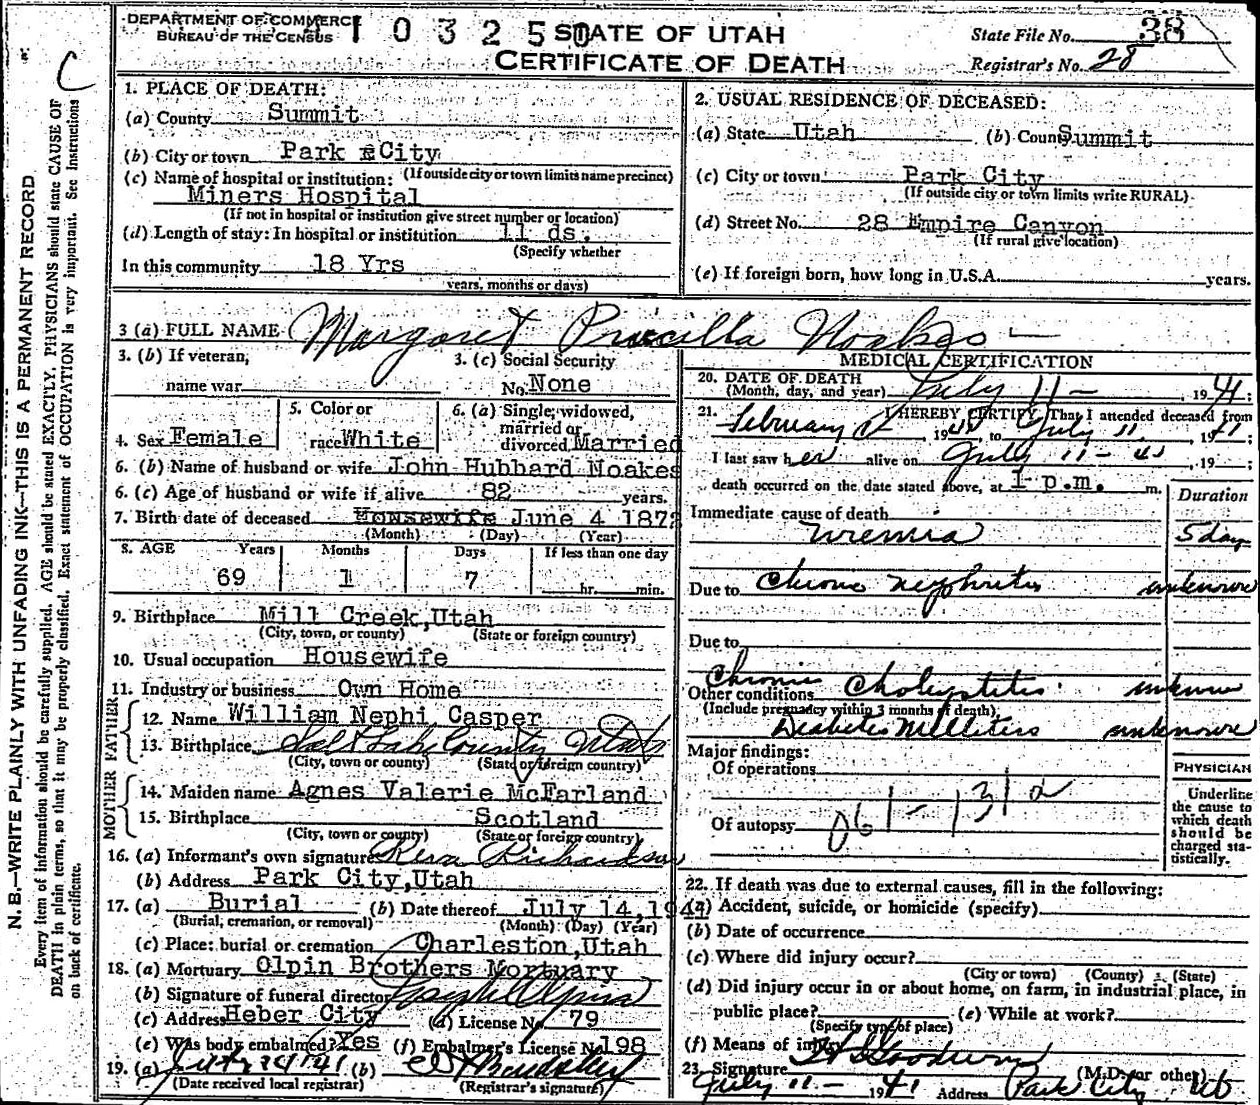 DEPARTMENT OF COMMERCE
BUREAU OF THE CENSUS
4103250
STATE OF UTAH
CERTIFICATE OF DEATH
State File No. 38
Registrar's No. 28
C
N. B.—WRITE PLAINLY WITH UNFADING INK—THIS IS A PERMANENT RECORD
Every item of information should be carefully supplied. AGE should be stated EXACTLY. PHYSICIANS should state CAUSE OF
DEATH in plain terms, so that it may be properly classified. Exact statement of OCCUPATION is very important. See Instructions
on back of certificate.
1. PLACE OF DEATH:
(a) County Summit
(b) City or town Park City
(If outside city or town limits name precinct)
(c) Name of hospital or institution:
Miners Hospital
(If not in hospital or institution give street number or location)
(d) Length of stay: In hospital or institution 11 ds.
(Specify whether
In this community 18 Yrs
years, months or days)
2. USUAL RESIDENCE OF DECEASED:
(a) State Utah (b) County Summit
(c) City or town Park City
(If outside city or town limits write RURAL)
(d) Street No. 28 Empire Canyon
(If rural give location)
(e) If foreign born, how long in U.S.A. years.
3 (a) FULL NAME Margaret Priscilla Noakes
3. (b) If veteran,
name war
3. (c) Social Security
No. None
4. Sex Female
5. Color or
race White
6. (a) Single, widowed,
married or
divorced Married
6. (b) Name of husband or wife John Hubbard Noakes
6. (c) Age of husband or wife if alive 82 years.
7. Birth date of deceased Housewife June 4 1872
(Month) (Day) (Year)
8. AGE Years Months Days If less than one day
69 1 7 hr. min.
9. Birthplace Mill Creek, Utah
(City, town, or county) (State or foreign country)
10. Usual occupation Housewife
11. Industry or business Own Home
FATHER
12. Name William Nephi Casper
13. Birthplace Salt Lake County Utah
(City, town or county) (State or foreign country)
MOTHER
14. Maiden name Agnes Valerie McFarland
15. Birthplace Scotland
(City, town or county) (State or foreign country)
16. (a) Informant's own signature Reva Richardson
(b) Address Park City, Utah
17. (a) Burial (b) Date thereof July 14, 1941
(Burial, cremation, or removal) (Month) (Day) (Year)
(c) Place: burial or cremation Charleston, Utah
18. (a) Mortuary Olpin Brothers Mortuary
(b) Signature of funeral director
(c) Address Heber City (d) License No. 79
(e) Was body embalmed? Yes (f) Embalmer's License No. 198
19. (a) (b)
(Date received local registrar) (Registrar's signature)
MEDICAL CERTIFICATION
20. DATE OF DEATH
(Month, day, and year) July 11 - , 1941;
21. I HEREBY CERTIFY, That I attended deceased from
February , 19 , to July 11 , 1941;
I last saw her alive on July 11 - 41 , 19 ;
death occurred on the date stated above, at 1 p.m. m.
Duration
Immediate cause of death
Uremia 5 days
Due to Chronic nephritis unknown
Due to
Chronic
Other conditions Cholecystitis unknown
(Include pregnancy within 3 months of death)
Diabetes Mellitus unknown
Major findings:
Of operations
Of autopsy
061 - 131a
PHYSICIAN
Underline
the cause to
which death
should be
charged sta-
tistically.
22. If death was due to external causes, fill in the following:
(a) Accident, suicide, or homicide (specify)
(b) Date of occurrence
(c) Where did injury occur?
(City or town) (County) (State)
(d) Did injury occur in or about home, on farm, in industrial place, in
public place? (e) While at work?
(Specify type of place)
(f) Means of injury
23. Signature
(M.D. or other)
July 11 - 1941 Address Park City Ut